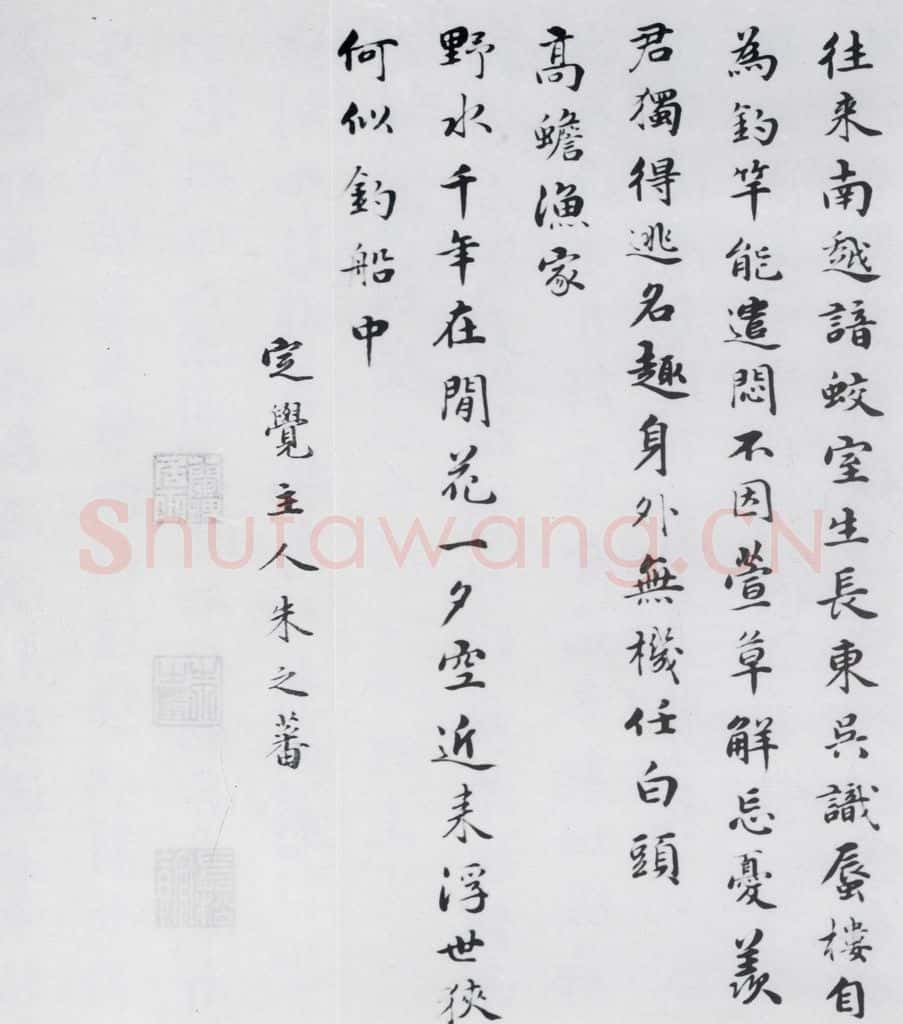 往来南越諳蛟室生長東吳識蜃樓自
為釣竿能遣悶不因萱草解忘憂羨
君獨得逃名趣身外無機任白頭
高蟾漁家
野水千年在閒花一夕空近来浮世狹
何似釣船中
定覺主人朱之蕃
Shufawang.CN